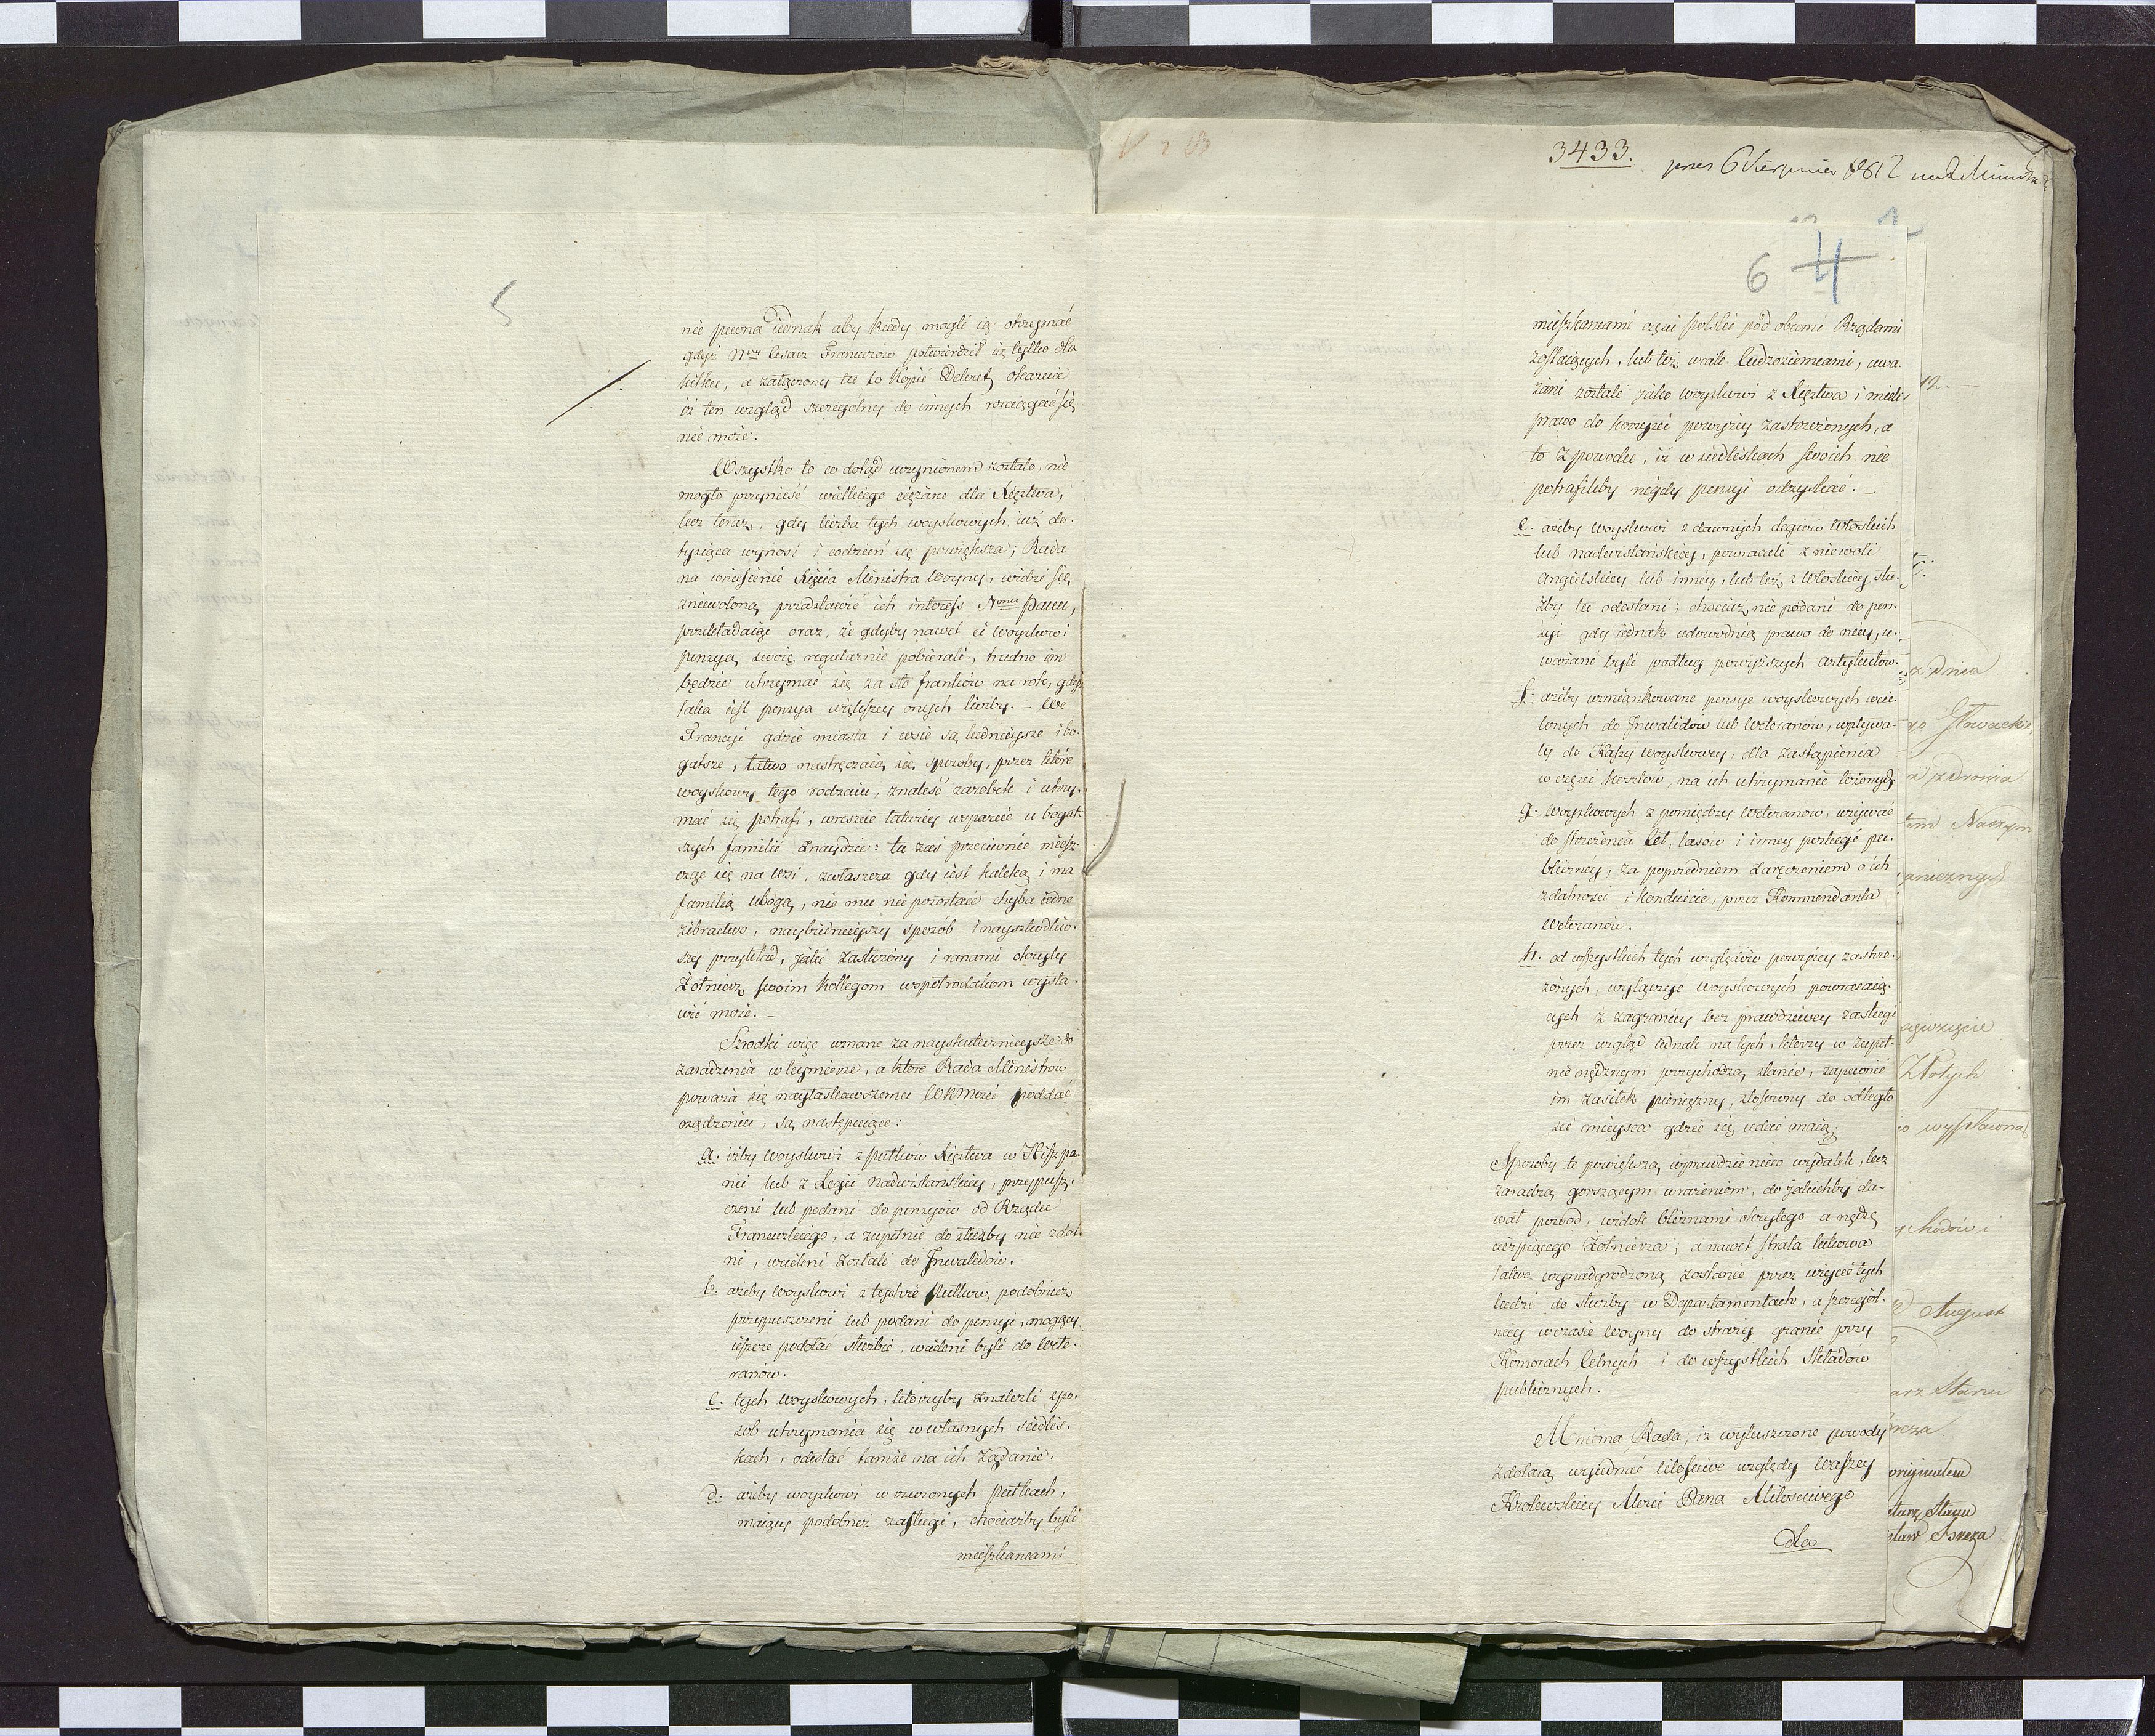 5
nie pewna iednak aby kiedy mogli ią otrzymać
gdyż Nny Cesarz Francuzów potwierdził ią tylko dla
kilku, a załączony tu w Kopii Dekret, okazuie
iż ten wzgląd szczegolny do innych rozciągać się
nie może.
Wszystko to co dotąd uczynionem zostało, nie
mogło przynieść wielkiego ciężaru dla Xięztwa,
lecz teraz, gdy liczba tych woyskowych iuż do
tysiąca wynosi i codzień się powiększa; Rada
na wniesienie Xięcia Ministra Woyny, widzi się
zniewoloną przedstawić ich interess Nmu Panu,
przekładaiąc oraz, że gdyby nawet ci woyskowi
pensyą swoię regularnie pobierali, trudno im
będzie utrzymać się za sto franków na rok, gdyż
taka iest pensya większey onych liczby. – We
Francyi gdzie miasta i wsie są ludnieysze i bo-
gatsze, łatwo nastręczaią się sposoby, przez które
woyskowy tego rodzaiu, znaleść zarobek i utrzy-
mać się potrafi, wreszcie łatwiey wsparcie u bogat-
szych familii znaydzie: tu zaś przeciwnie miesz-
cząc się na wsi, zwłaszcza gdy iest kaleką i ma
familią ubogą, nie mu nie pozostaie chyba iedno
żebractwo, naybiednieyszy sposób i nayszkodliw-
szy przykład, jaki zasłużony i ranami okryty
Żołnierz swoim kollegom współrodakom wysta-
wić może. –
Szrodki więc uznane za nayskutecznieysze do
zaradzenia w tey mierze, a które Rada Ministrów
poważa się nayłaskawszemu WKMości poddać
osądzeniu, są następuiące:
a. iżby woyskowi z pułków Xięztwa w Hiszpa-
nii lub z Legii Nadwislanskiey, przypusz-
czeni lub podani do pensyiow od Rządu
Francuzkiego, a zupełnie do służby nie zdat-
ni, wcieleni zostali do Inwalidów.
b. ażeby woyskowi z tychże Pułków, podobnież
przypuszczeni lub podani do pensyi, mogący
ieszcze podołać służbie, wcieleni byli do Wete-
ranów.
c. tych woyskowych, którzyby znalezli spo-
sob utrzymania się w własnych siedlis-
kach, odesłać tamże na ich żądanie.
d. ażeby woyskowi w rzeczonych pułkach,
maiący podobneż zasługi, chociażby byli
mieszkancami
3433.
pres 6 Sierpnia 1812
6 4
mieszkancami części Polski pod obcemi Rządami
zostaiących, lub też wcale Cudzoziemcami, uwa-
żani zostali jako woyskowi z Xięztwa i mieli
prawo do korzyści powyżey zastrzeżonych, a
to z powodu, iż w siedliskach swoich nie
potrafiliby nigdy pensyi odzyskać. –
e. ażeby woyskowi z dawnych Legiow Włoskich
lub nadwislańskiey, powracali z niewoli
Angielskiey lub inney, lub też z Włoskiey słu-
żby tu odesłani; chociaż nie podani do pen-
syi gdy iednak udowodnią prawo do niey, u-
ważani byli podług powyższych artykułow.
f. ażeby wzmiankowane pensye woyskowych wcie-
lonych do Inwalidów lub Weteranów, wpływa-
ły do Kassy woyskowey, dla zastąpienia
w części kosztów, na ich utrzymanie łożonych.
g. Woyskowych z pomiędzy Weteranow, używać
do strzeżenia Ceł, lasów i inney posługi pu-
bliczney, za poprzedniem zaręczeniem o ich
zdatności i konduicie, przez Kommendanta
Weteranów.
h. od wszystkich tych względów powyżey zastrze-
żonych, wyłączyć woyskowych powracaią-
cych z zagranicy bez prawdziwey zasługi
przez wzgląd iednak na tych, którzy w zupeł-
nie nędznym przychodzą stanie, zapewnić
im zasiłek pieniężny, stosowny do odległo
ści mieysca gdzie się udać maią.
Sposoby te powiększą wprawdzie nieco wydatek, lecz
zaradzą gorszącym wrażeniom, do jakichby da-
wał powod, widok bliznami okrytego a nędzę
cierpiącego Żołnierza, a nawet strata takowa
łatwo wynadgrodzoną zostanie przez użycie tych
ludzi do służby w Departamentach, a szczegól-
niey w czasie Woyny do straży granic przy
Komorach Celnych i do wszystkich Składów
publicznych.
Mniema Rada, iż wyłuszczone powody
zdołaią wyiednać litościwe względy Waszey
Krolewskiey Mości Pana Miłosciwego
dla
12.
dnia
Głowackie
zdrowia
Naszym
Złotych
August
Stanu
originalem
Stanu
Breza